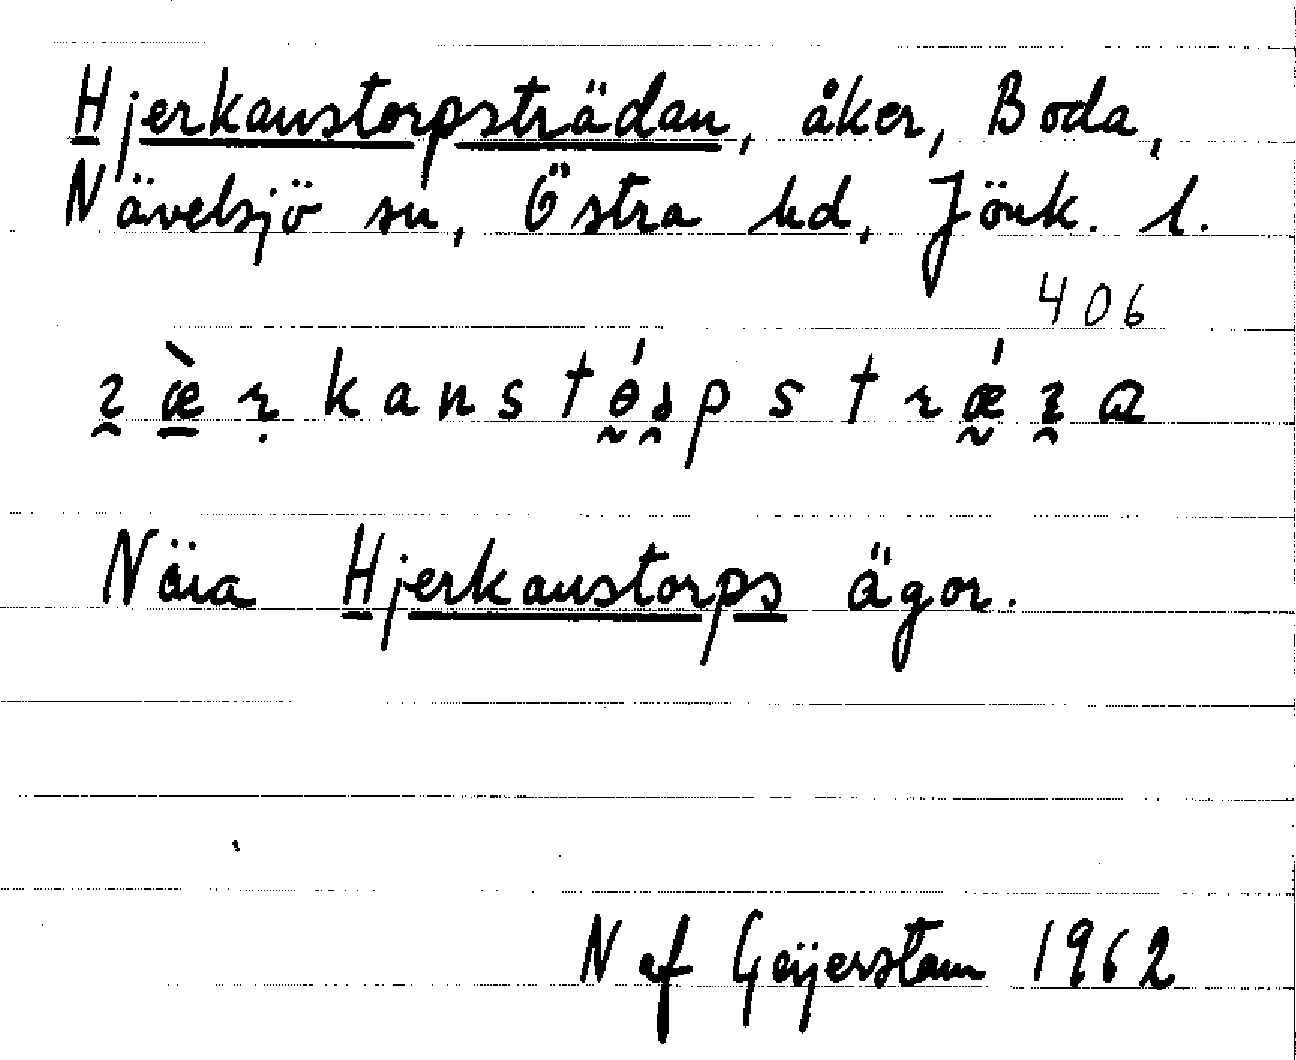 Hjerkanstorpsträdan, åker, Boda,
Nävelsjö sn, Östra hd, Jönk. l.
406
Nära Hjerkanstorps ägor.
N af Geijerstam 1962